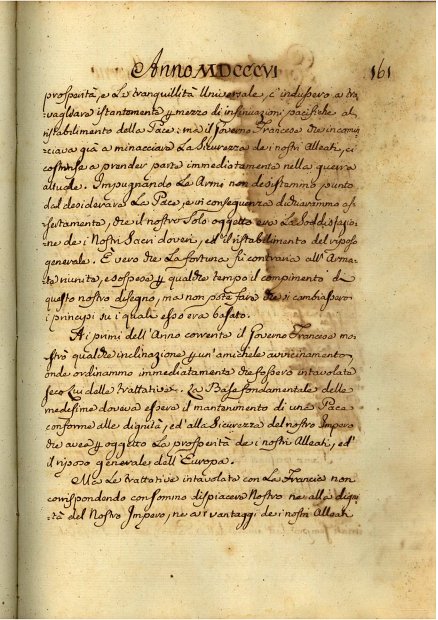 Anno MDCCCVI
161
prosperità, e La tranquillità Universale, c'indussero a tra,
vagliare istantemente p mezzo di insinuazioni pacifiche al
ristabilimento della Pace: ma il Governo Francese che incomin,
ciava già a minacciare La Sicurezza de i nostri Alleati, ci
costrinse a prender parte immediatamente nella guerra
attuale. Impugnando Le Armi non desistemmo punto
dal desiderare La Pace, e in conseguenza dichiarammo a
sertamente, che il nostro Solo oggetto era La Soddisfazio,
ne de i Nostri Sacri doveri, ed il ristabilimento del riposo
generale. È vero che La fortuna fu contraria all'Arma,
te riunite, e sospese p qualche tempo il compimento di
questo nostro disegno, ma non potè fare che si cambiassero
i principj su i quali esso era basato.
Ai primi dell'Anno corrente il Governo Francese mo,
strò qualche inclinazione p un'amichele avvicinamento,
onde ordinammo immediatamente che fossero intavolate
seco Lui delle trattative. La Base fondamentale delle
medesime doveva essere il mantenimento di una Pace
conforme alla dignità, ed alla Sicurezza del nostro Impero
che avea p oggetto La prosperità de i nostri Alleati, ed
il riposo generale dell'Europa.
Ma Le trattative intavolate con La Francia non
corrispondendo con sommo dispiacere Nostro nè alla digni,
tà del Nostro Impero, nè a i vantaggi de i nostri Alleati